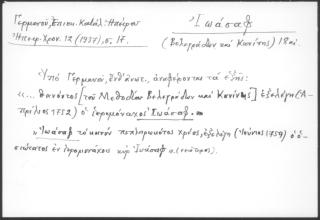 Γερμανού, Επισκ. Κατάλ. Ηπείρου
Ηπειρ. Χρον. 12 (1937), σ. 17.
Ἰωάσαφ
(Βελεγράδων καὶ Κανίνης) 18 αἰ.
Ὑπὸ Γερμανοῦ, ἔνθ' ἀνωτ., ἀναφέρονται τὰ ἑξῆς:
«... θανόντος [τοῦ Μεθοδίου Βελεγράδων καὶ Κανίνης] ἐξελέγη (Ἀ-
πρίλιος 1752) ὁ ἱερομόναχος Ἰωάσαφ.»
«Ἰωάσαφ τὸ κοινὸν πεπληρωκότος χρέος, ἐξελέγη (Ἰούνιος 1759) ὁ ὁ-
σιώτατος ἐν ἱερομονάχοις κὺρ Ἰωάσαφ